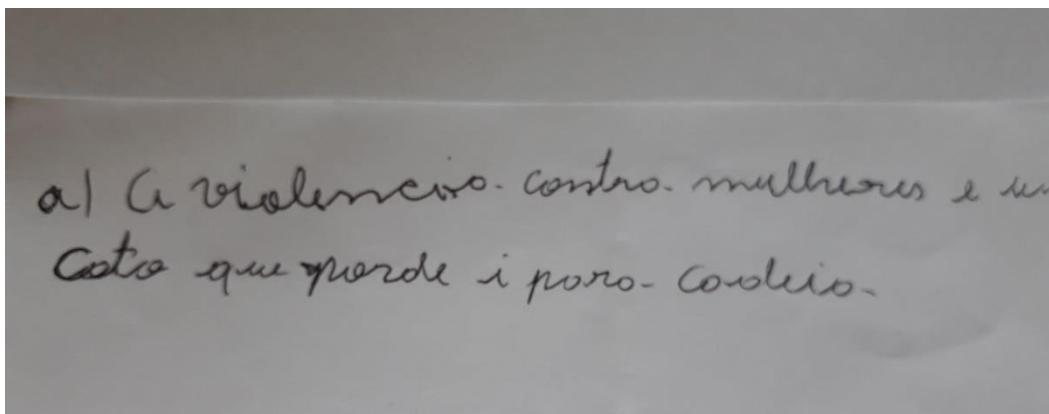 a) A violencia contra mulheres e um
Cato que porde i para cadeia.